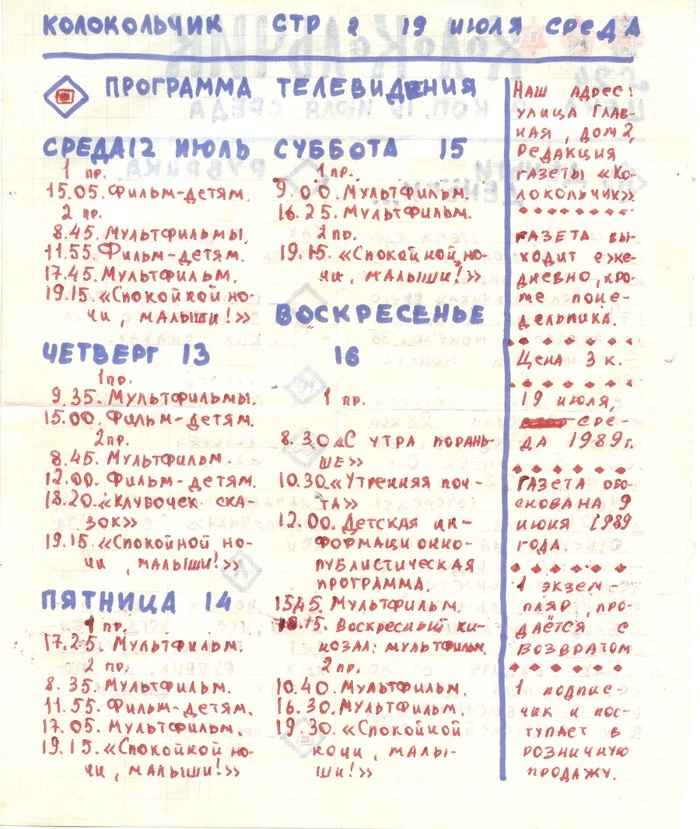 КОЛОКОЛЬЧИК СТР 2 19 ИЮЛЯ СРЕДА
ПРОГРАММА ТЕЛЕВИДЕНИЯ
СРЕДА 12 ИЮЛЬ
1 пр.
15.05. Фильм-детям.
2 пр.
8.45. Мультфильмы.
11.55. Фильм-детям.
17.45. Мультфильм.
19.15. «Спокойной но-
чи, малыши!»
ЧЕТВЕРГ 13
1 пр.
9.35. Мультфильмы.
15.00. Фильм-детям.
2 пр.
8.45. Мультфильм.
12.00. Фильм-детям.
18.20. «Клубочек ска-
зок»
19.15. «Спокойной но-
чи, малыши!»
ПЯТНИЦА 14
1 пр.
17.25. Мультфильм.
2 пр.
8.35. Мультфильм.
11.55. Фильм-детям.
17.05. Мультфильм.
19.15. «Спокойной но-
чи, малыши!»
СУББОТА 15
1 пр.
9.00. Мультфильм.
16.25. Мультфильм.
2 пр.
19.15. «Спокойной, но-
чи, малыши!»
ВОСКРЕСЕНЬЕ
16
1 пр.
8.30 «С утра порань-
ше»
10.30. «Утренняя поч-
та»
12.00. Детская ин-
формационно-
публистическая
программа.
15.45. Мультфильм.
18.15. Воскресный ки-
козал: мультфильм.
2 пр.
10.40. Мультфильм.
16.30. Мультфильм.
19.30. «Спокойной
ночи, малы-
ши!»
Наш адрес:
улица Глав-
ная, дом 2,
редакция
газеты «Ко-
локольчик»
Газета вы-
ходит еже-
дневно, кро-
ме поне-
дельника.
Цена 3 к.
19 июля,
сре-
да 1989 г.
Газета обо-
снована 9
июня 1989
года.
1 экзем-
пляр про-
даётся с
возвратом
1 подпис-
чик и пос-
тупает в
розничную
продажу.